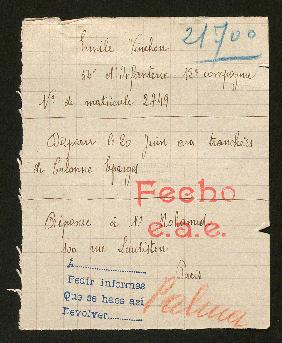 Emile
21700
54e d'Infanterie 12e compagnie
No de matricule 2749
Disparu le 20 Juin aux tranchées
de Calonne Eparges
Fecho
e.a.e.
Réponse à Mr Mohamed
100 rue Lauriston
Paris
A
Pedir informes
Que se hase así
Devolver